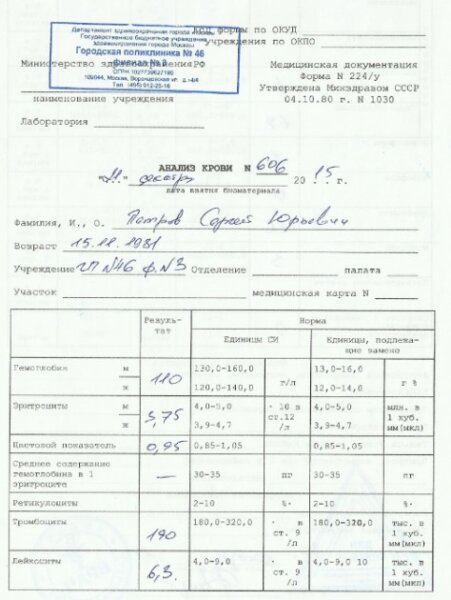 Департамент здравоохранения города Москвы
Государственное бюджетное учреждение
здравоохранения города Москвы
Городская поликлиника № 46
филиал № 3
ОГРН 1027739627180
109044, Москва, Воронцовская ул.
Тел. (495) 912-25-16
Код формы по ОКУД
учреждения по ОКПО
Министерство здравоохранения РФ
Медицинская документация
Форма N 224/у
Утверждена Минздравом СССР
04.10.80 г. N 1030
наименование учреждения
Лаборатория
АНАЛИЗ КРОВИ N 606
декабря 2015 г.
дата взятия биоматериала
Фамилия, И., О. Петров Сергей Юрьевич
Возраст 15.11.1981
Учреждение ГП №46 ф.№3 Отделение палата
Участок медицинская карта N
Резуль-тат Норма
Единицы СИ Единицы, подлежащие замене
Гемоглобин м 110 130,0-160,0 г/л 13,0-16,0 г %
ж 120,0-140,0 12,0-14,0
Эритроциты м 3,75 4,0-5,0 · 10 в ст.12 /л 4,0-5,0 млн. в 1 куб. мм(мкл)
ж 3,9-4,7 3,9-4,7
Цветовой показатель 0,95 0,85-1,05 0,85-1,05
Среднее содержание гемоглобина в 1 эритроците — 30-35 пг 30-35 пг
Ретикулоциты 2-10 %· 2-10 %·
Тромбоциты 190 180,0-320,0 · в ст. 9 /л 180,0-320,0 тыс. в 1 куб. мм(мкл)
Лейкоциты 6,3 4,0-9,0 · в ст. 9 /л 4,0-9,0 10 тыс. в 1 куб. мм(мкл)